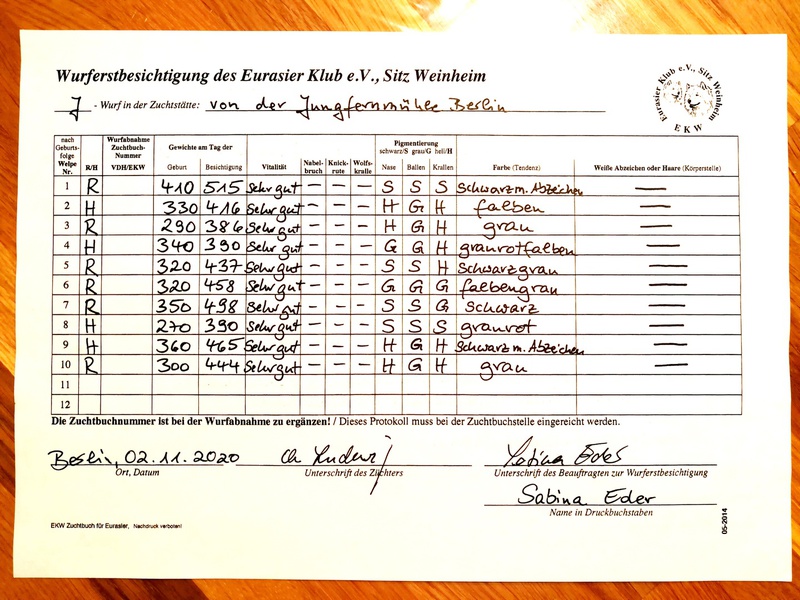 Wurferstbesichtigung des Eurasier Klub e.V., Sitz Weinheim
Eurasier Klub e.V., Sitz Weinheim
EKW
J - Wurf in der Zuchtstätte: von der Jungfernmühle Berlin
nach Geburtsfolge Welpe Nr. R/H Wurfabnahme Zuchtbuch-Nummer VDH/EKW Gewichte am Tag der Geburt Besichtigung Vitalität Nabelbruch Knickrute Wolfskralle Pigmentierung schwarz/S grau/G hell/H Nase Ballen Krallen Farbe (Tendenz) Weiße Abzeichen oder Haare (Körperstelle)
1 R 410 515 Sehr gut – – – S S S Schwarz m. Abzeichen —
2 H 330 416 Sehr gut – – – H G H falben —
3 R 290 386 Sehr gut – – – H G H grau —
4 H 340 390 Sehr gut – – – G G H graurotfalben —
5 R 320 437 Sehr gut – – – S S H Schwarzgrau —
6 R 320 458 Sehr gut – – – G G G falbengrau —
7 R 350 498 Sehr gut – – – S S G Schwarz —
8 H 270 390 Sehr gut – – – S S S graurot —
9 H 360 465 Sehr gut – – – H G H Schwarz m. Abzeichen —
10 R 300 444 Sehr gut – – – H G H grau —
11
12
Die Zuchtbuchnummer ist bei der Wurfabnahme zu ergänzen! / Dieses Protokoll muss bei der Zuchtbuchstelle eingereicht werden.
Berlin, 02.11.2020 Sabina Eder
Ort, Datum Unterschrift des Züchters Unterschrift des Beauftragten zur Wurferstbesichtigung
Sabina Eder
Name in Druckbuchstaben
EKW Zuchtbuch für Eurasier, Nachdruck verboten!
05-2014